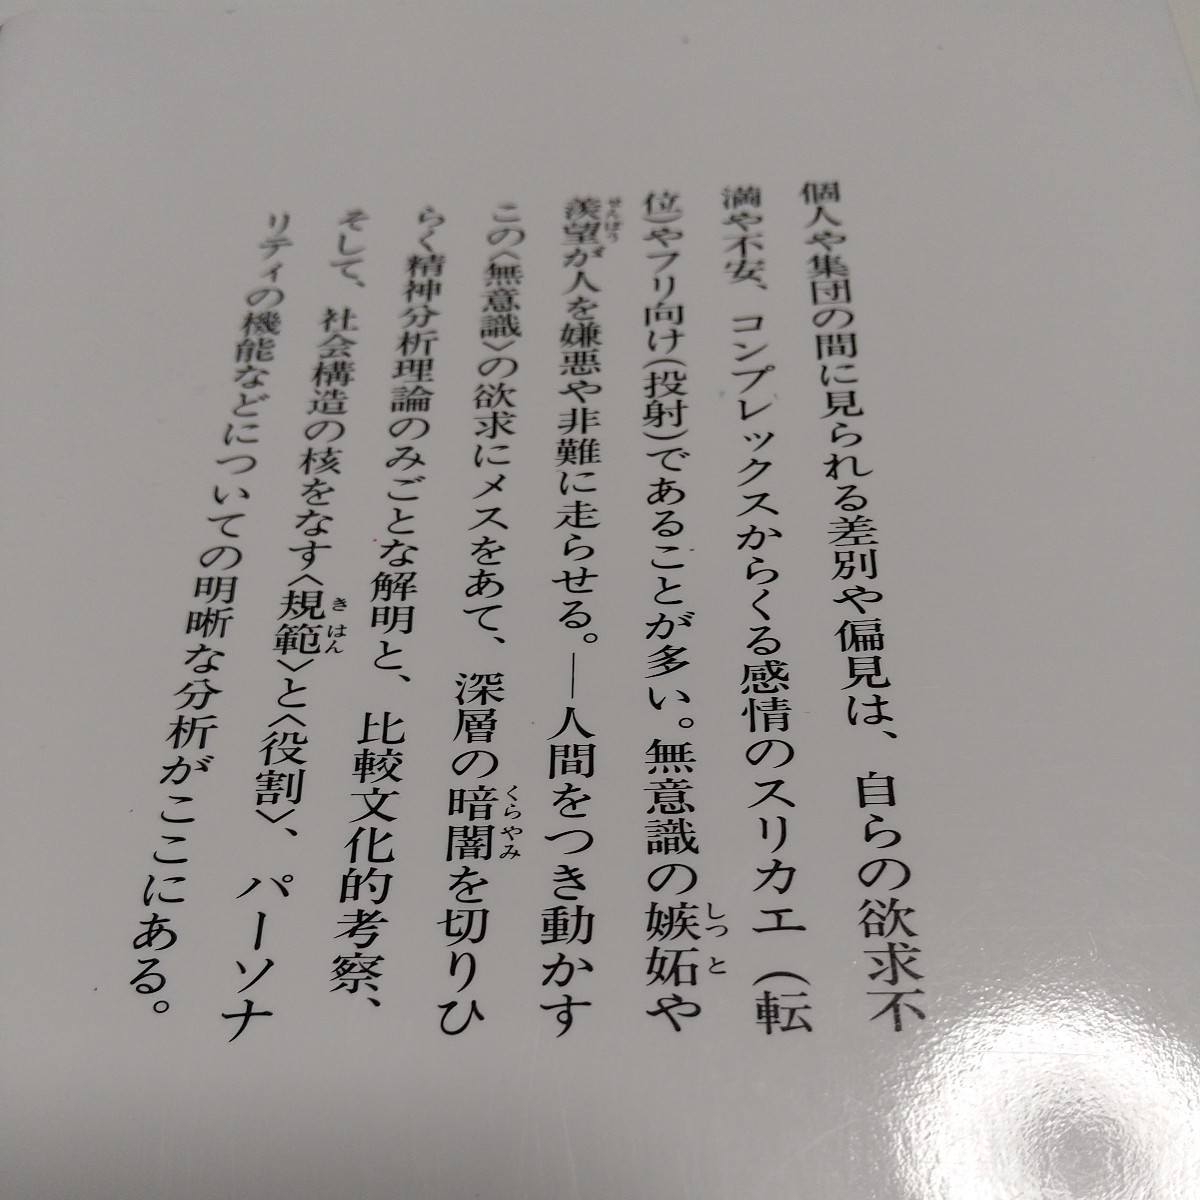 個人や集団の間に見られる差別や偏見は、自らの欲求不
満や不安、コンプレックスからくる感情のスリカエ(転
位)やフリ向け(投射)であることが多い。無意識の嫉妬や
羨望が人を嫌悪や非難に走らせる。―人間をつき動かす
この〈無意識〉の欲求にメスをあて、深層の暗闇を切りひ
らく精神分析理論のみごとな解明と、比較文化的考察、
そして、社会構造の核をなす〈規範〉と〈役割〉、パーソナ
リティの機能などについての明晰な分析がここにある。
しっと
せんぼう
くらやみ
きはん